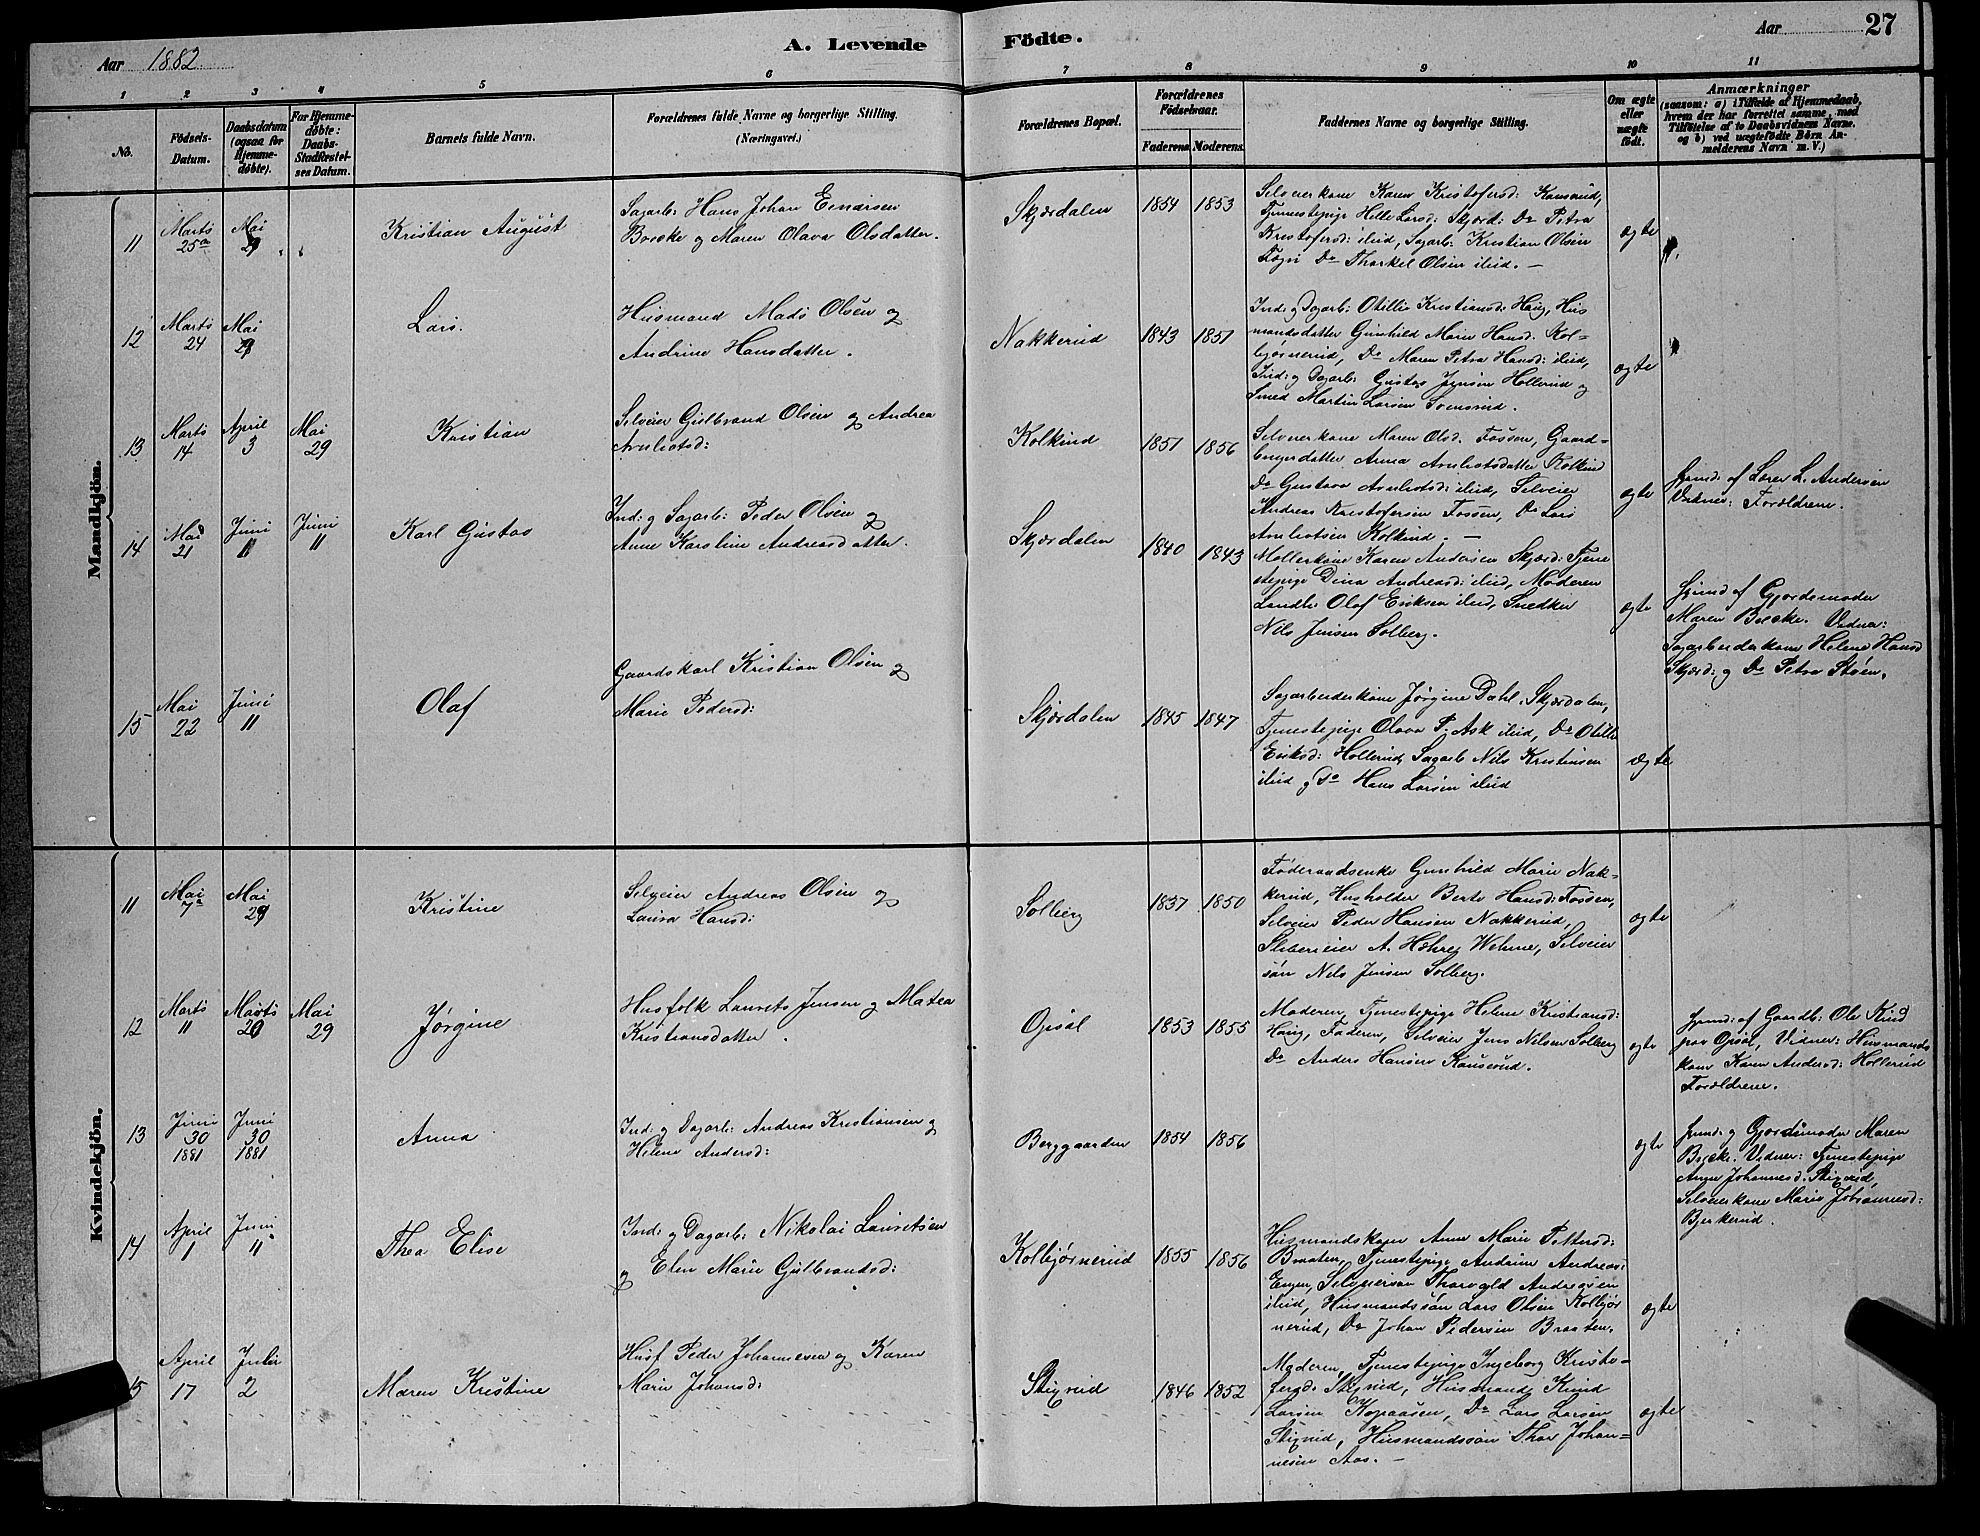 Aar 1882
A. Levende
Födte.
Aar
27
1 2 3 4 5 6 7 8 9 10 11
No.
Födsels-
Datum.
Daabsdatum
(ogsaa for
Hjemme-
døbte).
For Hjemme-
døbte:
Daabs-
Stadfestel-
ses Datum.
Barnets fulde Navn.
Forældrenes fulde Navne og borgerlige Stilling.
(Næringsvei.)
Forældrenes Bopæl.
Forældrenes
Födselsaar.
Faderens
Moderens.
Faddernes Navne og borgerlige Stilling.
Om ægte
eller
uægte
født.
Anmærkninger
(saasom: a) i Tilfælde af Hjemmedaab,
hvem der har forrettet samme, med
Tilföielse af to Daabsvidners Navne,
og b) ved uægtefödte Börn An-
melderens Navn m. V.)
Mandkjön.
11
Marts
25
Mai
29
Kristian August
Sagarb: Hans Johan Einarsen
Brecke og Maren Olava Olsdatter.
Skjærdalen
1854
1853
Selveierkone Karen Kristofersd:
Tjenestepige Helle Larsd: Skjærd: Do Petra
Kristofersd: ibid, Sagarb: Kristian Olsen
Do Thorkel Olsen ibid. —
ægte
12
Marts
24
Mai
29
Lars.
Husmand Mads Olsen og
Andrine Hansdatter.
Nakkerud
1843
1851
Ind: g Dagarb: Otillie Kristiansd: Haug, Hus
mandsdatter Gunhild Marie Hansd. Kol-
bjørnerud, Do Maren Petra Hansd: ibid,
Ind: g Dagarb: Gustav Jensen Hollerud og
Smed Martin Larsen Svensrud.
ægte
13
Marts
14
April
3
Mai
29
Kristian
Selveier Gulbrand Olsen og Andrea
Arnliotsd:
Kolkind
1851
1856
Selveierkone Maren Olsd. Fossen, Gaard-
brugerdatter Anna Arnliotsdatter Kolkind
Do Gustava Arnliotsd: ibid, Selveier
Andreas Kristofersen Fossen, Do Lars
Arnliotsen Kolkind. —
ægte
hjemd: af Lærer L. Andersen
Vidner: Forældrene.
14
Mai
21
Juni
11
Juni
11
Karl Gustav
Ind: g Sagarb: Peder Olsen og
Anne Karoline Andreasdatter.
Skjærdalen
1840
1843
Møllerkone Karen Andersen Skjærd: Tjene
stepige Dina Andreasd: ibid, Moderen
Landh: Olaf Eriksen ibid, Snedker
Nils Jensen Solberg.
ægte
hjemd af Gjordemoder
Maren Brecke. Vidner:
Sagarbeiderkone Helene Hansd
Skjærd: g Do Petra Støen.
15
Mai
22
Juni
11
Olaf
Gaardskarl Kristian Olsen og
Marie Pedersd:
Skjærdalen
1845
1847
Sagarbeiderkone Jørgine Dahl, Skjærdalen,
Tjenestepige Olava P. Ask ibid, Do Otillie
Eriksd: Hollerud, Sagarb Nils Kristensen
ibid g Do Hans Larsen ibid
ægte
Kvindekjön.
11
Mai
7
Mai
29
Kristine
Selveier Andreas Olsen og
Laura Hansd:
Solberg
1837
1850
Føderaadsenke Gunhild Marie Nak-
kerud, Husholder Berte Hansd: Fossen,
Selveier Peder Hansen Nakkerud,
Sliberieier A. Wehme, Selveier
søn Nils Jensen Solberg.
ægte
12
Marts
11
Marts
20
Mai
29
Jørgine
Husfolk Laurets Jensen og Matea
Kristiansdatter.
Opsal
1853
1855
Moderen, Tjenestepige Helene Kristiansd:
Haug, Faderen, Selveier Jens Nilsen Solberg
Do Anders Hansen
ægte
hjemd: af Gaardb: Ole Knud
paa Opsal, Vidner: Husmands
kone Karen Andersd: Hollerud
Forældrene.
13
Juni
30
1881
Juni
30
1881
Anna
Ind: g Dagarb: Andreas Kristiansen og
Helene Andersd:
Berggaarden
1854
1856
ægte
hjemd: g Gjordemoder Maren
Brecke. Vidner: Tjenestepige
Anne Johannesd: Stigrud,
Selveierkone Marie Johannesd:
Bjerkerud.
14
April
1
Juni
11
Thea Elise
Ind: g Dagarb: Nikolai Lauretsen
og Elen Marie Gulbrandsd:
Kolbjørnerud
1855
1856
Husmandskone Anne Marie Pettersd:
Braaten, Tjenestepige Andrine Andreasd:
Engen, Selveiersøn Thorvald Andreasen
ibid, Husmandssøn Lars Olsen Kolbjør
nerud, Do Johan Pedersen Braaten.
ægte
15
April
17
Juli
2
Maren Kristine
Husf Peder Johannesen og Karen
Marie Johansd:
Stigrud
1846
1852
Moderen, Tjenestepige Ingeborg Kristo-
fersd: Stigrud, Husmand Knud
Larsen Kopaasen, Do Lars Larsen
Stigrud, Husmandssøn Thor Johan-
nesen Aas. —
ægte